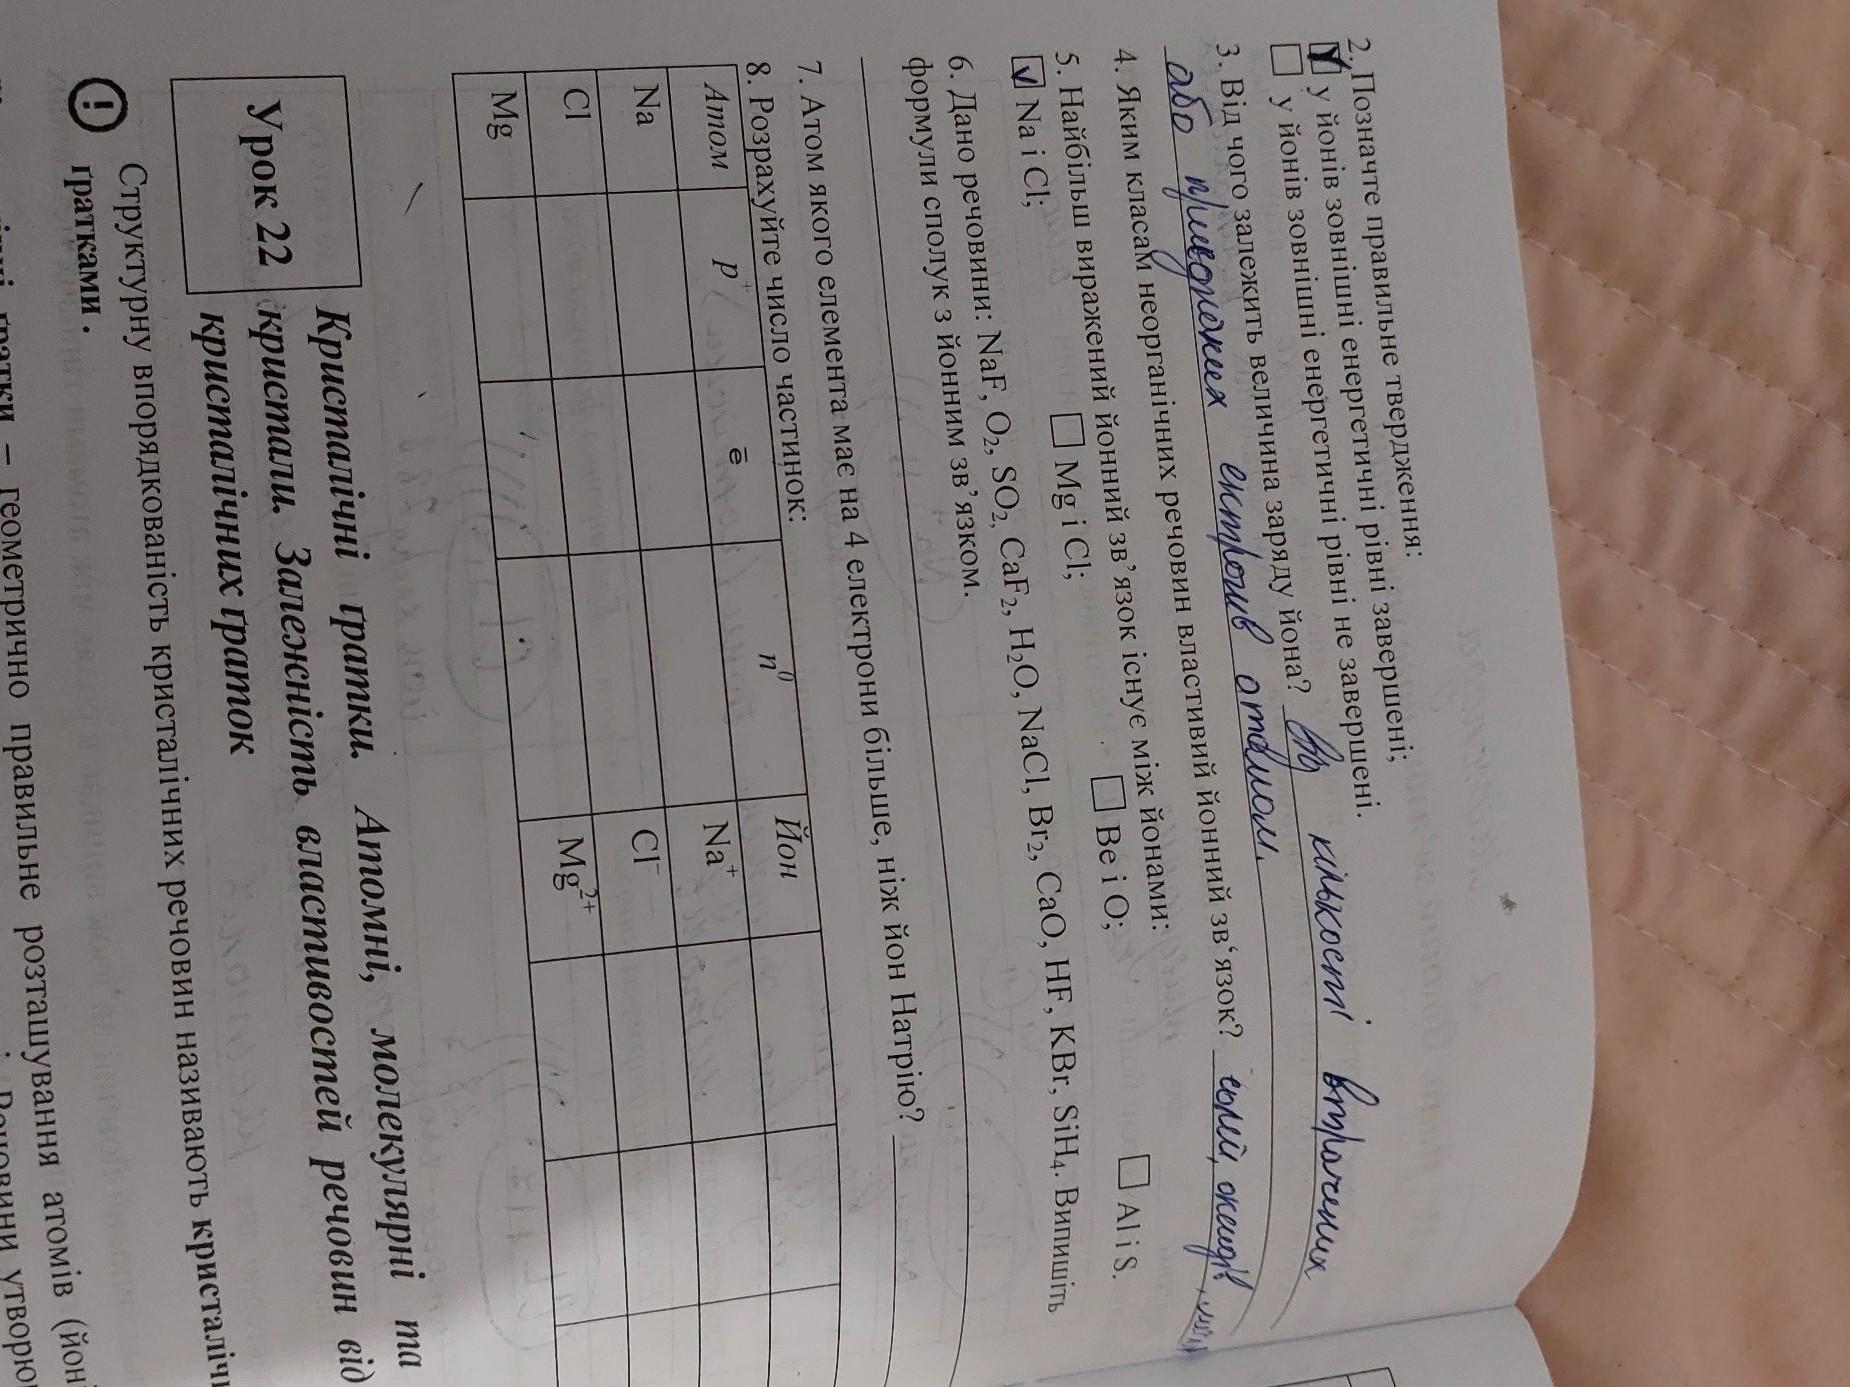 2. Позначте правильне твердження:
у йонів зовнішні енергетичні рівні завершені;
у йонів зовнішні енергетичні рівні не завершені.
3. Від чого залежить величина заряду йона? від кількості втрачених
або приєднаних електронів атомом.
4. Яким класам неорганічних речовин властивий йонний зв‘язок? солей, оксидів,
5. Найбільш виражений йонний зв’язок існує між йонами:
Na i Cl; Mg i Cl; Be i O; Al i S.
6. Дано речовини: NaF, O₂, SO₂, CaF₂, H₂O, NaCl, Br₂, CaO, HF, KBr, SiH₄. Випишіть
формули сполук з йонним зв’язком.
7. Атом якого елемента має на 4 електрони більше, ніж йон Натрію?
8. Розрахуйте число частинок:
Атом p⁺ ē n⁰ Йон
Na Na⁺
Cl Cl⁻
Mg Mg²⁺
Урок 22
Кристалічні ґратки. Атомні, молекулярні та
кристали. Залежність властивостей речовин від
кристалічних ґраток
! Структурну впорядкованість кристалічних речовин називають
ґратками.
ґратки – геометрично правильне розташування атомів